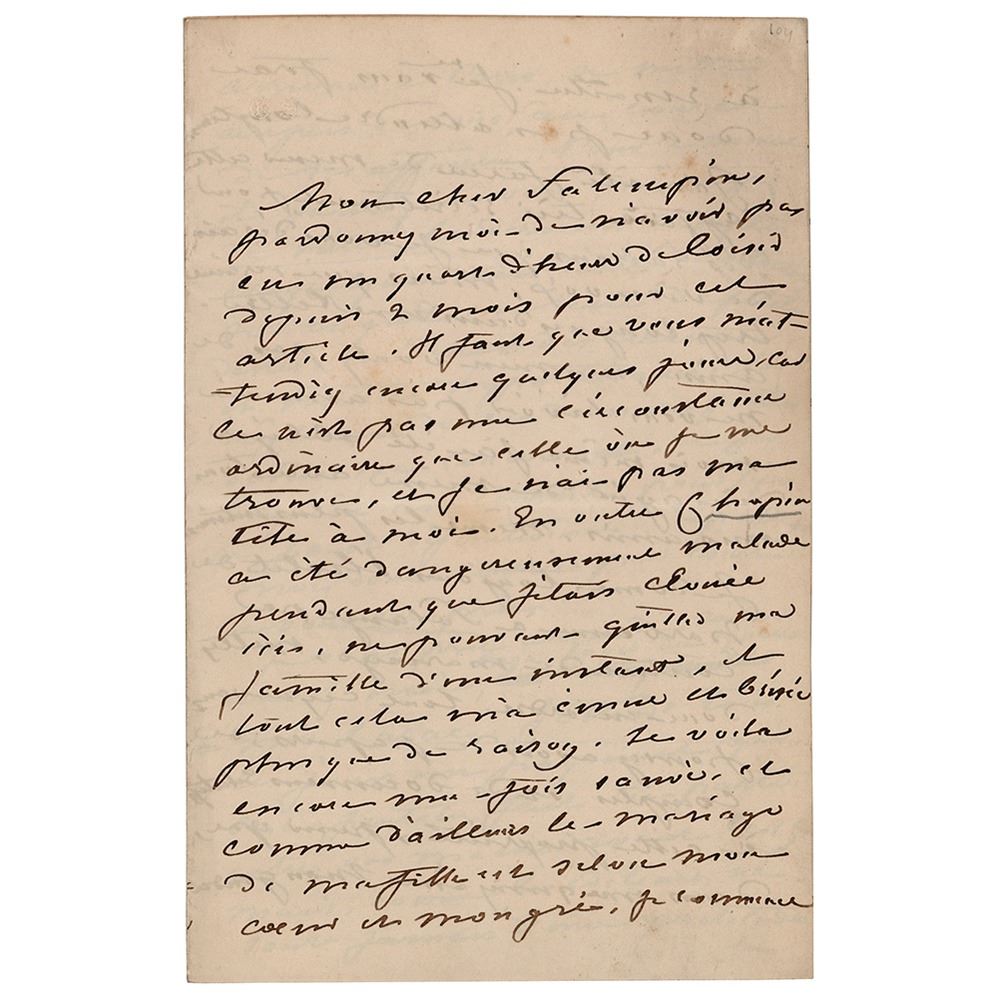 104
Mon cher Falempin,
pardonnez moi de n'avoir pas
eu un quart d'heure de loisir
depuis 2 mois pour cet
article. Il faut que vous m'at-
tendiez encore quelques jours, car
ce n'est pas une circonstance
ordinaire que celle où je me
trouve, et je n'ai pas ma
tête à moi. En outre Chopin
a été dangereusement malade
pendant que j'étais clouée
ici, ne pouvant quitter ma
famille d'un instant, et
tout cela m'a émue et brisée
plus que de raison. Le voilà
encore une fois sauvé, et
comme d'ailleurs le mariage
de ma fille est selon mon
cœur et mon gré, je commence